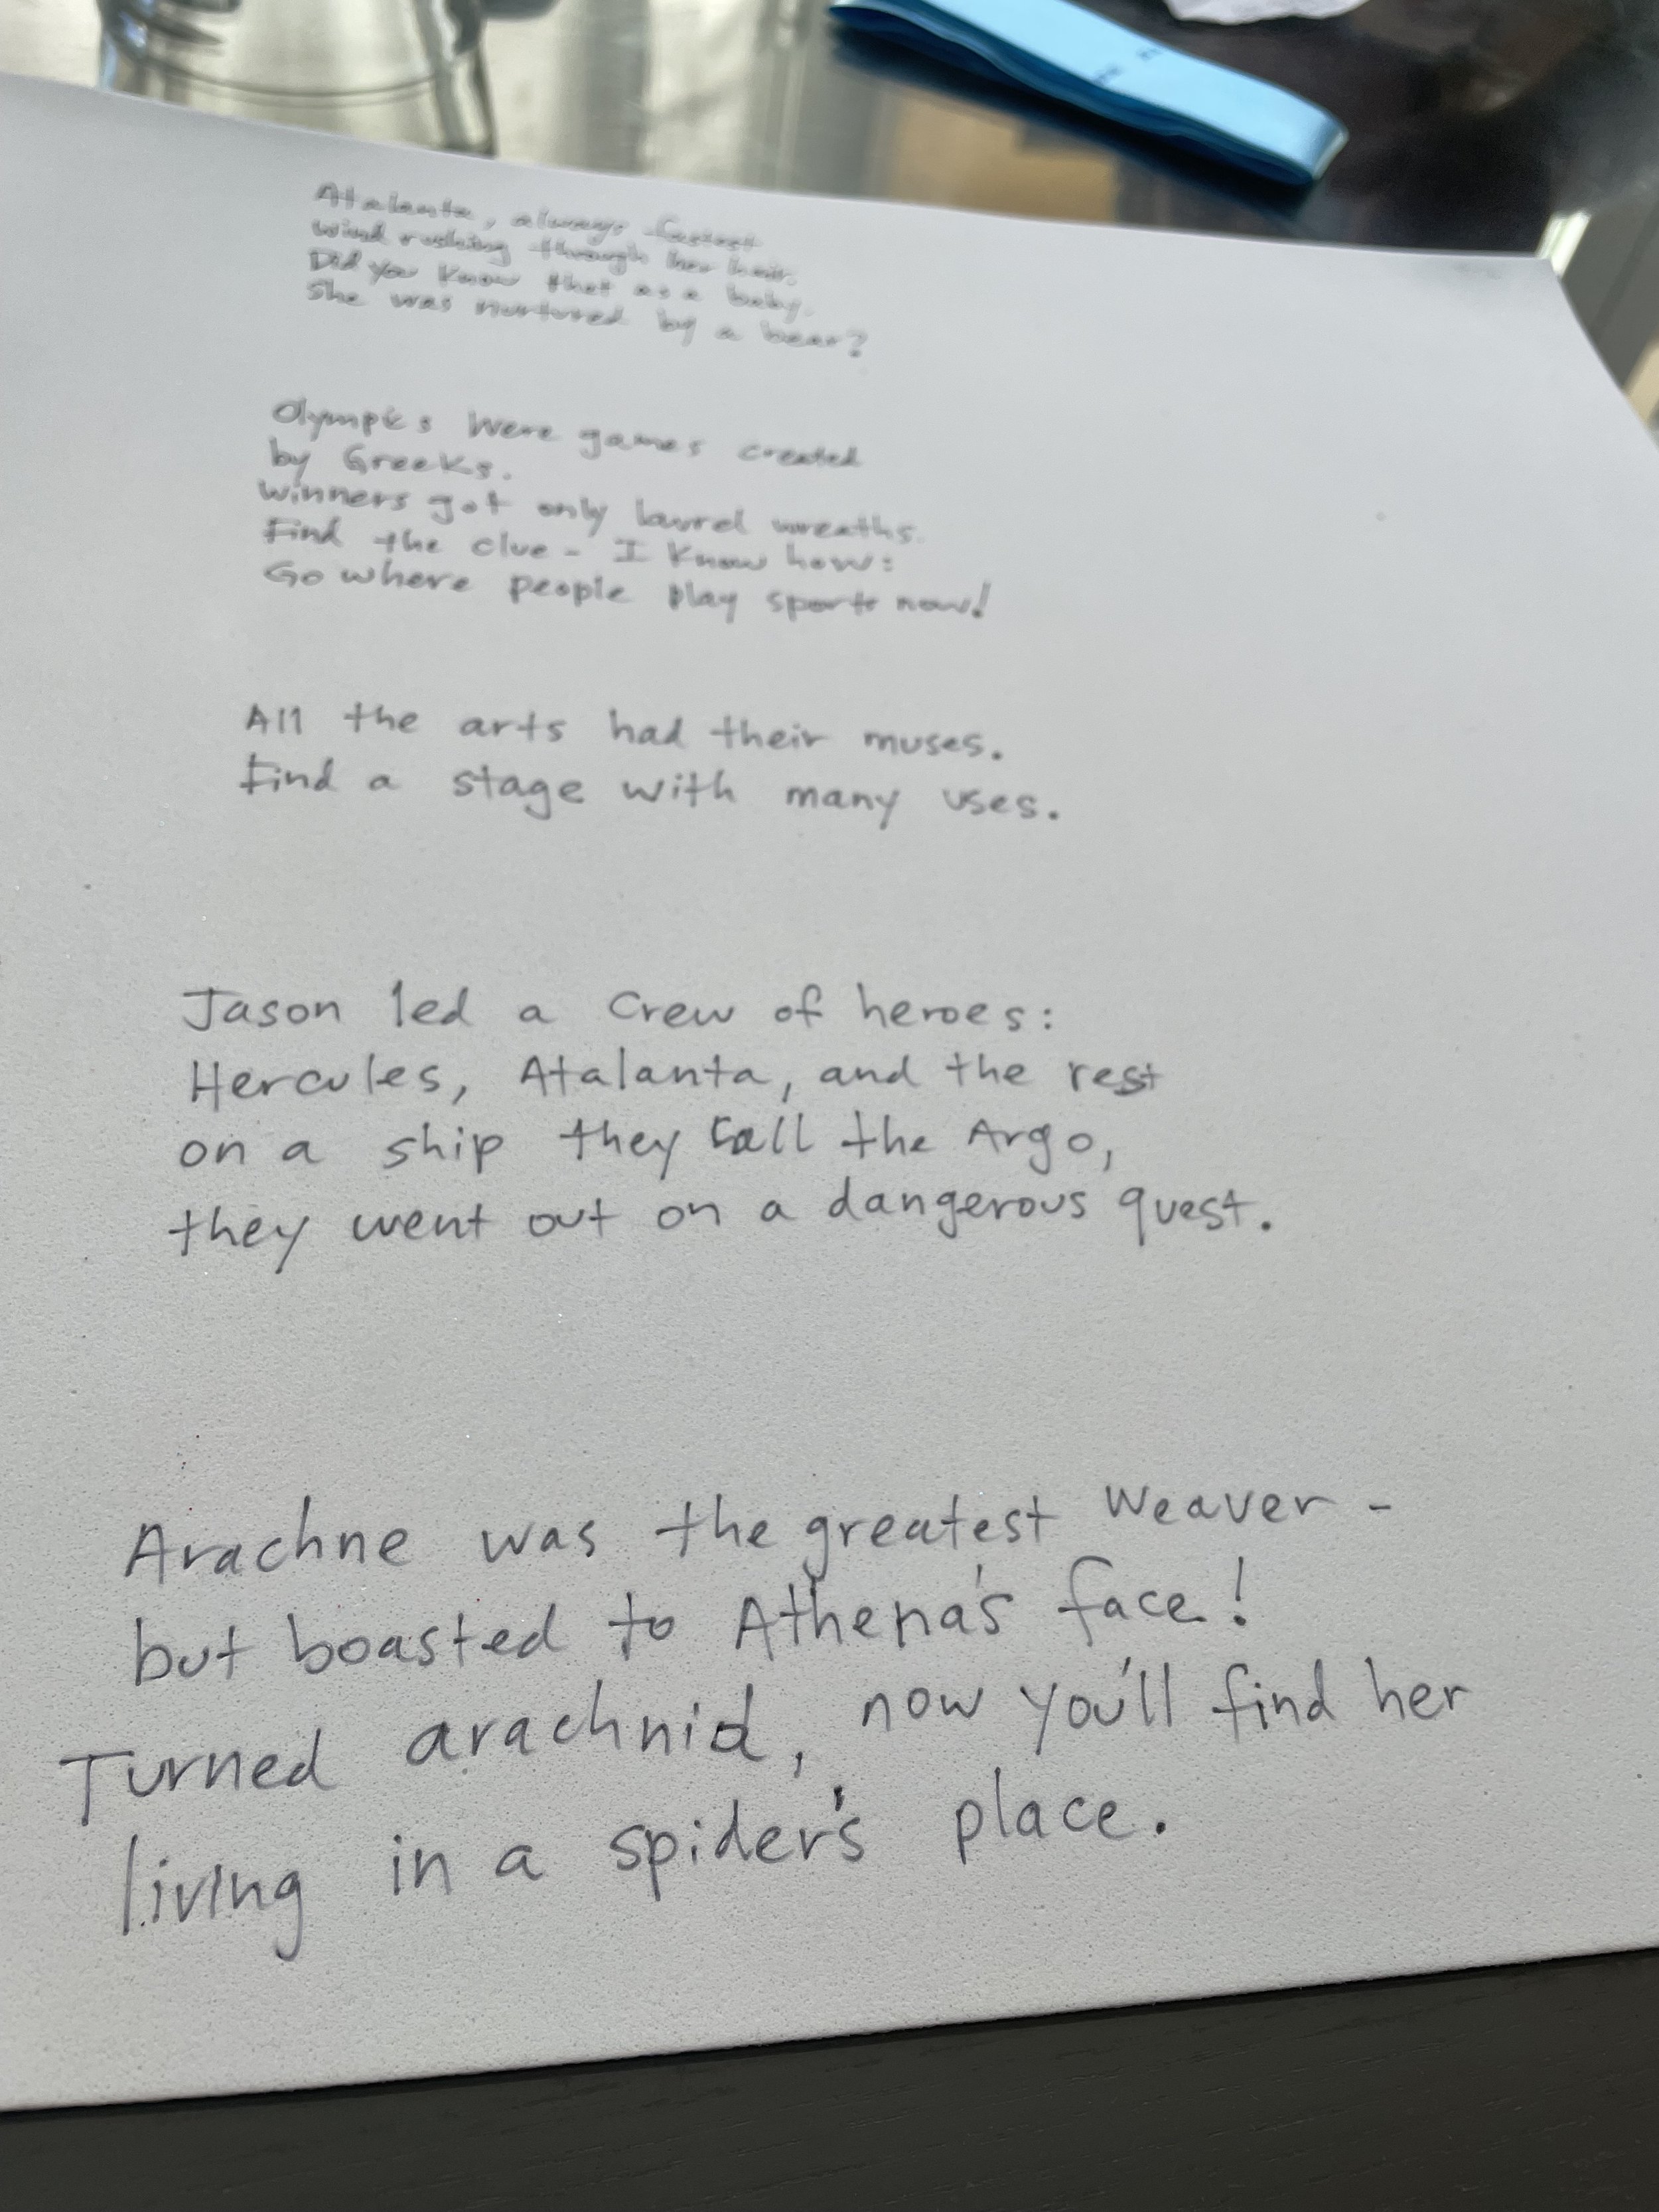 Atalanta, always fastest
wind rushing through her hair.
Did you know that as a baby,
She was nurtured by a bear?
Olympics were games created
by Greeks.
Winners got only laurel wreaths.
Find the clue - I know how:
Go where people play sports now!
All the arts had their muses.
Find a stage with many uses.
Jason led a crew of heroes:
Hercules, Atalanta, and the rest
on a ship they call the Argo,
they went out on a dangerous quest.
Arachne was the greatest weaver -
but boasted to Athena's face!
Turned arachnid, now you'll find her
living in a spider's place.